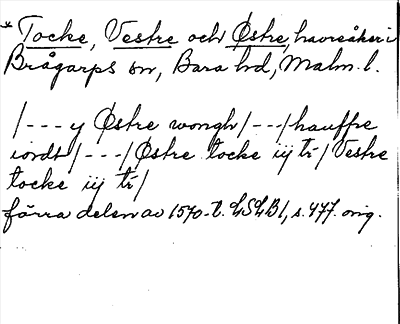 * Tocke, Vestre och Østre, havreåker i
Brågarps sn, Bara hd, Malm. l.
/---y Østre wongh/---/hauffre
iordt/---/Østre tocke iij tr/Vestre
tocke iij tr/
förra delen av 1570-t. LSLB1, s. 477. orig.